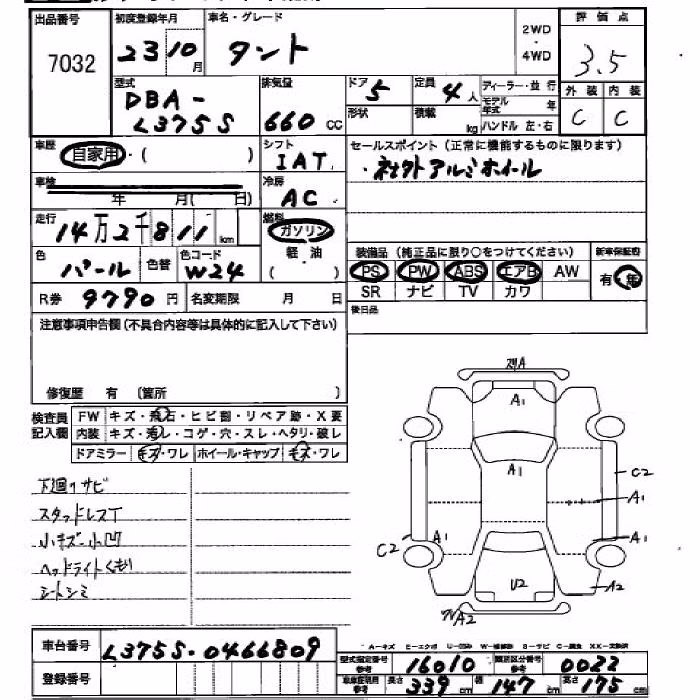 出品番号 7032
初度登録年月 23 10 月
車名・グレード タント
2WD ・ 4WD
評価点 3.5
外装 内装
C C
型式 DBA-L375S
排気量 660 cc
ドア 5
形状
定員 4 人
積載 kg
ディーラー・並行
モデル年式 年
ハンドル 左・右
車歴 自家用・( )
シフト IAT
セールスポイント(正常に機能するものに限ります)
・社外アルミホイール
車検 年 月( 日)
冷房 AC
走行 14万2千811 km
燃料 ガソリン
軽・油
( )
色 パール
色替
色コード W24
装備品 (純正品に限り○をつけてください)
新車保証書
PS PW ABS エアB AW
有・無
SR ナビ TV カワ
R券 9790 円
名変期限 月 日
後日品
注意事項申告欄(不具合内容等は具体的に記入して下さい)
修復歴 有 〔箇所 〕
検査員記入欄
FW キズ・飛石・ヒビ割・リペア跡・X要
内装 キズ・汚レ・コゲ・穴・スレ・ヘタリ・破レ
ドアミラー キズ・ワレ ホイール・キャップ キズ・ワレ
下廻りサビ
スタッドレスT
小キズ・小凹
ヘッドライトくもり
シートシミ
A1
A1
C2
A1
C2
A1
A1
U2
A2
A2
車台番号 L375S-0466809
登録番号
A-キズ E-エクボ U-凹み W-補修跡 S-サビ C-腐食 XX-交換済
型式指定番号 参考 16010
類別区分番号 参考 0022
車車証明用 参考 長さ 339 cm 幅 147 cm 高さ 175 cm